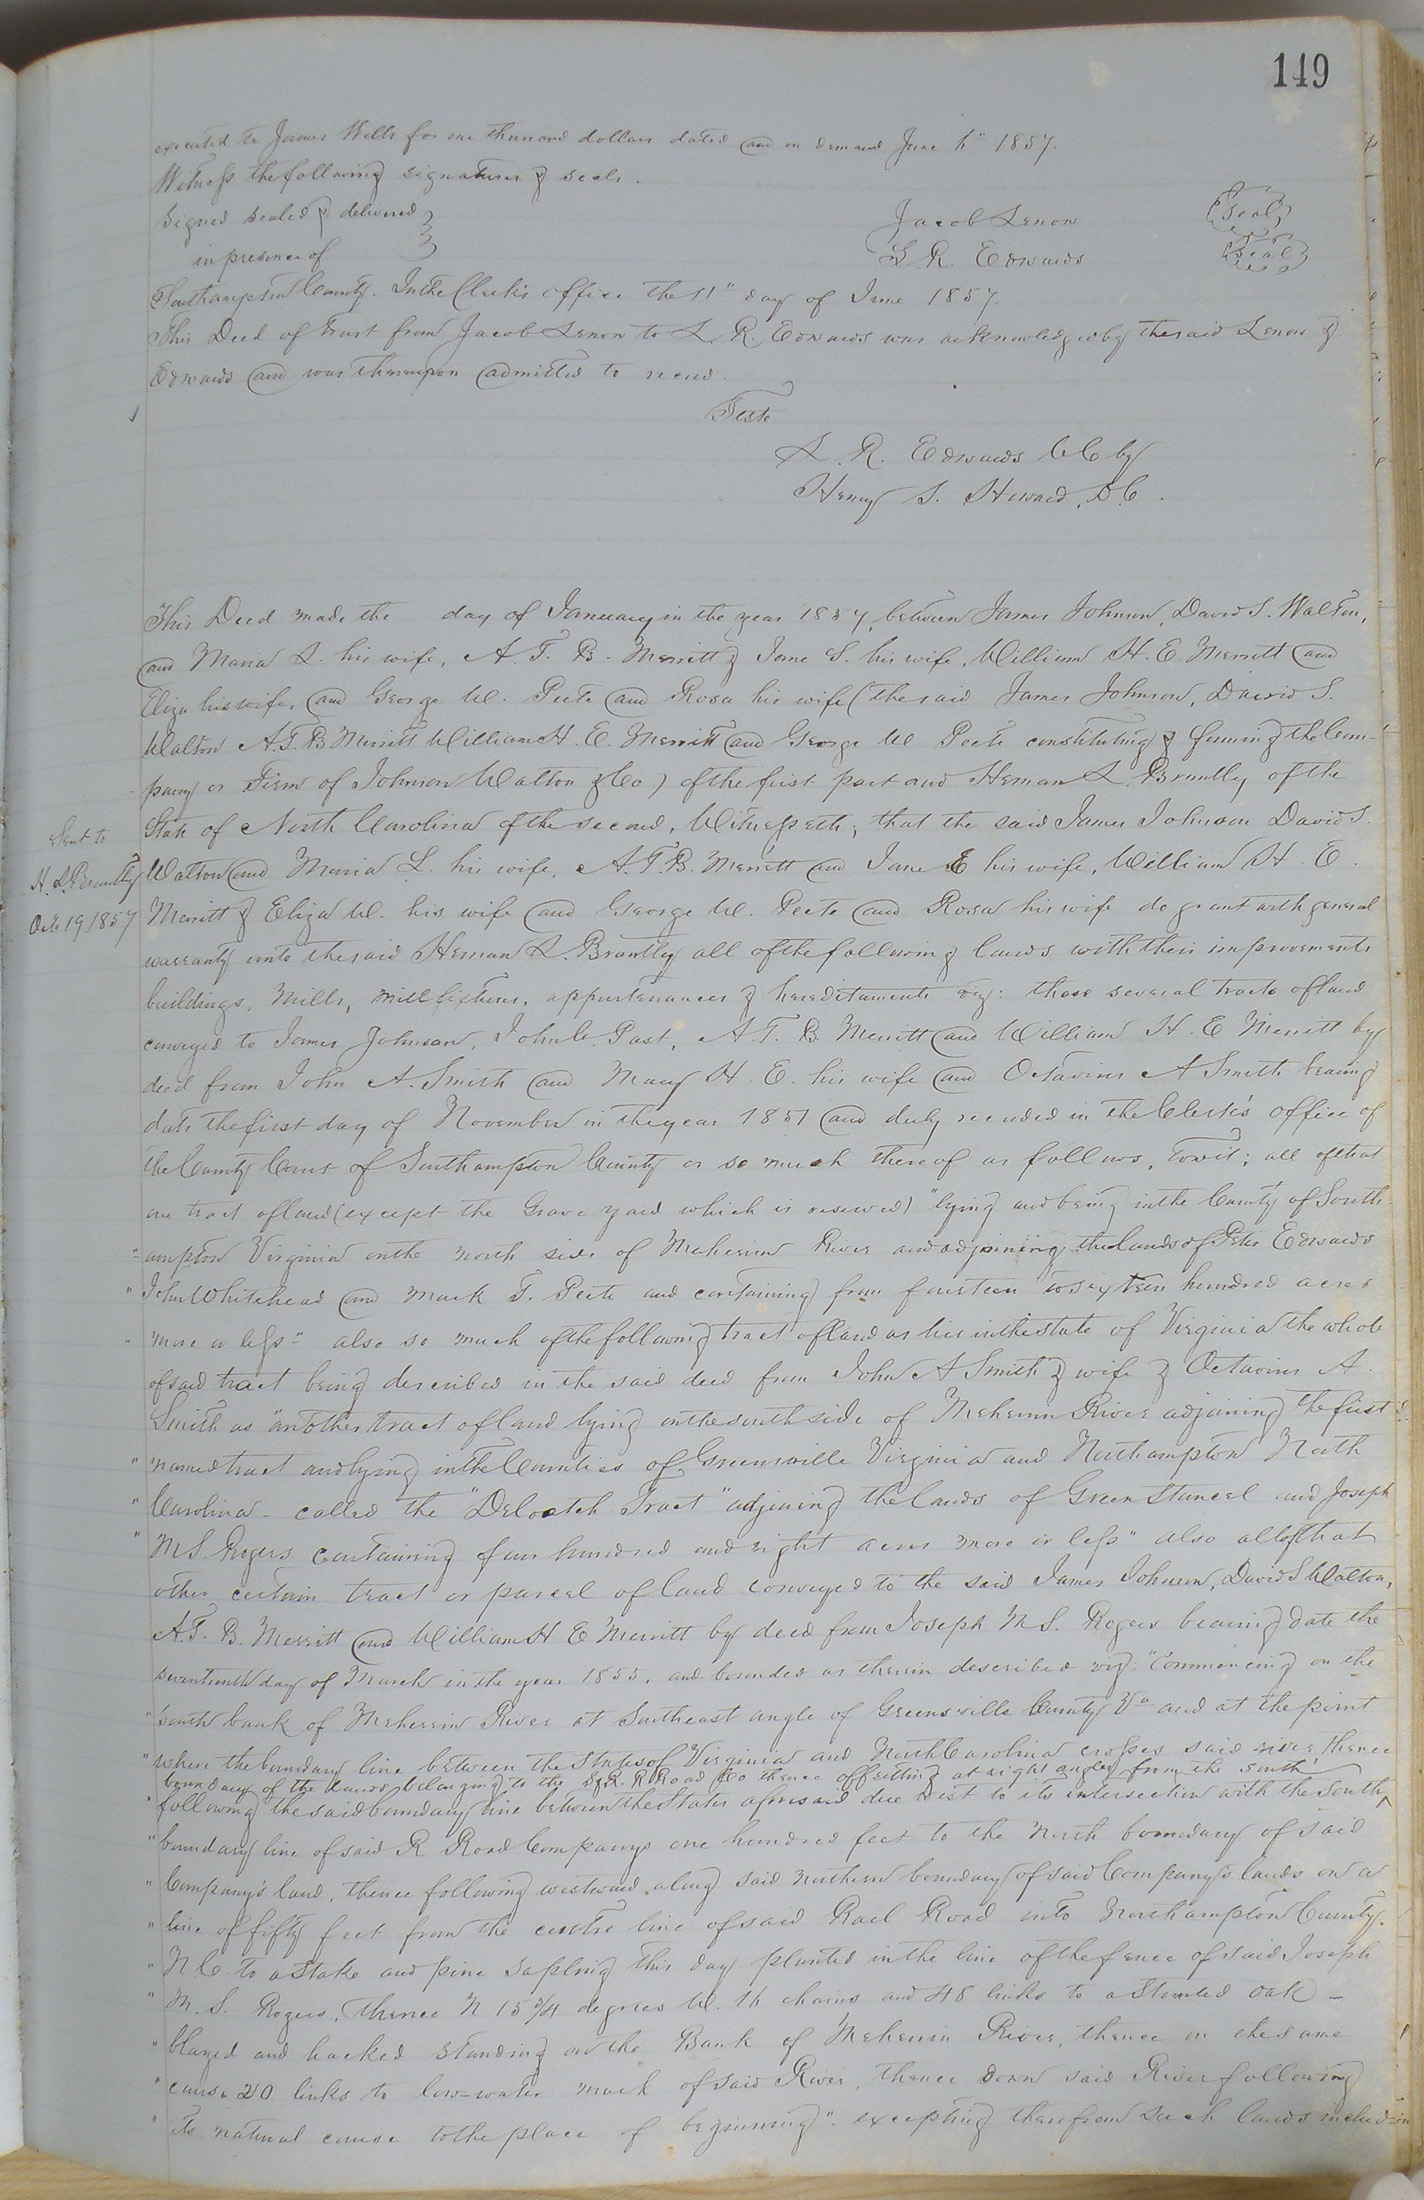 149
executed to James Wells for one thousand dollars dated and on demand June 6" 1857.
Witness the following signatures & seals.
Signed sealed & delivered
in presence of
Jacob Lenow (Seal)
L R. Edwards (Seal)
Southampton County. In the Clerk's office the 11" day of June 1857.
This Deed of Trust from Jacob Lenow to L. R. Edwards was acknowledged by the said Lenow &
Edwards and was thereupon admitted to record.
Teste
L. R. Edwards CC by
Henry S. Howard, D.C.
This Deed made the day of January in the year 1857, between James Johnson, David S. Walton,
and Maria L. his wife, A. T. B. Merritt & Jane S. his wife, William H. E. Merritt and
Eliza his wife, and George W. Peete and Rosa his wife (the said James Johnson, David S.
Walton A.T.B Merritt William H. E. Merritt and George W Peete constituting & forming the Com-
pany or Firm of Johnson Walton & Co) of the first part and Herman L. Brantley of the
State of North Carolina of the second, Witnesseth; that the said James Johnson David S.
Walton and Maria L. his wife, A. T. B. Merritt and Jane E his wife, William H. E.
Merritt & Eliza W. his wife and George W. Peete and Rosa his wife do grant with general
warranty unto the said Herman L. Brantley all of the following lands with their improvements
buildings, Mills, mill fixtures, appurtenances & hereditaments viz: those several tracts of land
conveyed to James Johnson, John C. Past, A. T. B. Merritt and William H. E Merritt by
deed from John A. Smith and Mary H. E. his wife and Octavius A Smith bearing
date the first day of November in the year 1851 and duly recorded in the Clerk's office of
the County Court of Southampton County or so much thereof as follows, Towit; all of that
one tract of land (except the Grave yard which is reserved) "lying and being in the County of South-
"ampton Virginia on the north side of Meherrin River and adjoining the lands of Peter Edwards
"John Whitehead and Mark T. Peete and containing from fourteen to sixteen hundred acres
"more or less" also so much of the following tract of land as lies in the state of Virginia the whole
of said tract being described in the said deed from John A Smith & wife & Octavius A.
Smith as "another tract of land lying on the south side of Meherrin River adjoining the first
"named tract and lying in the Counties of Greensville Virginia and Northampton North
"Carolina - called the "Deloatch Tract" adjoining the lands of Green Stancel and Joseph
"M S. Rogers containing four hundred and eight acres more or less" also all of that
other certain tract or parcel of land conveyed to the said James Johnson, David S Walton,
A.T. B. Merritt and William H E Merritt by deed from Joseph M S. Rogers bearing date the
seventeenth day of March in the year 1855, and bounded as therein described viz: "Commencing on the
"south bank of Meherrin River at Southeast angle of Greensville County Va and at the point
"where the boundary line between the States of Virginia and North Carolina crosses said river, thence
boundary of the lands belonging to the S & R. R Road Co thence offsetting at right angles from the south
"following the said boundary line between the States aforesaid due West to its intersection with the South ^
"boundary line of said R Road Company's one hundred feet to the North boundary of said
"Company's land, thence following westward along said northern boundary of said Company's lands on a
"line of fifty feet from the centre line of said Rail Road into Northampton County.
"N C to a Stake and pine sapling this day planted in the line of the fence of said Joseph
"M. S. Rogers, Thence N 15 3/4 degrees W. 16 chains and 48 links to a Stunted oak -
"blazed and hacked standing on the Bank of Meherrin River, thence on the same
"course 20 links to low-water mark of said River, thence down said River following
"its natural course to the place of beginning". excepting therefrom such lands includ-
Sent to
H. L. Brantley
Oct 19 1857